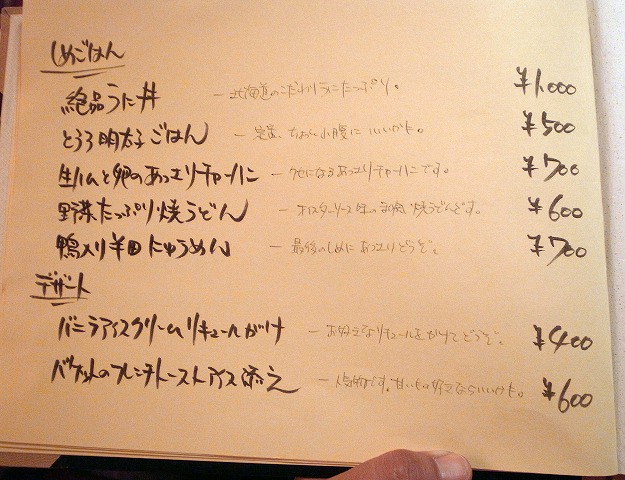 しめごはん
絶品うに丼 ー北海道のこだわりうにたっぷり。 ¥1,000
とろろ明太子ごはん ー定番、ちょい小腹にいいかも。 ¥500
生ハムと卵のあっさりチャーハン ークセになるあっさりチャーハンです。 ¥700
野菜たっぷり焼うどん ーオイスターソース味の 焼うどんです。 ¥600
鴨入り にゅうめん ー最後のしめにあっさりどうぞ。 ¥700
デザート
バニラアイスクリームリキュールがけ ーお好きなリキュールをかけてどうぞ。 ¥400
バケットのフレンチトーストアイス添え ー 甘いもの好きならいいかも。 ¥600